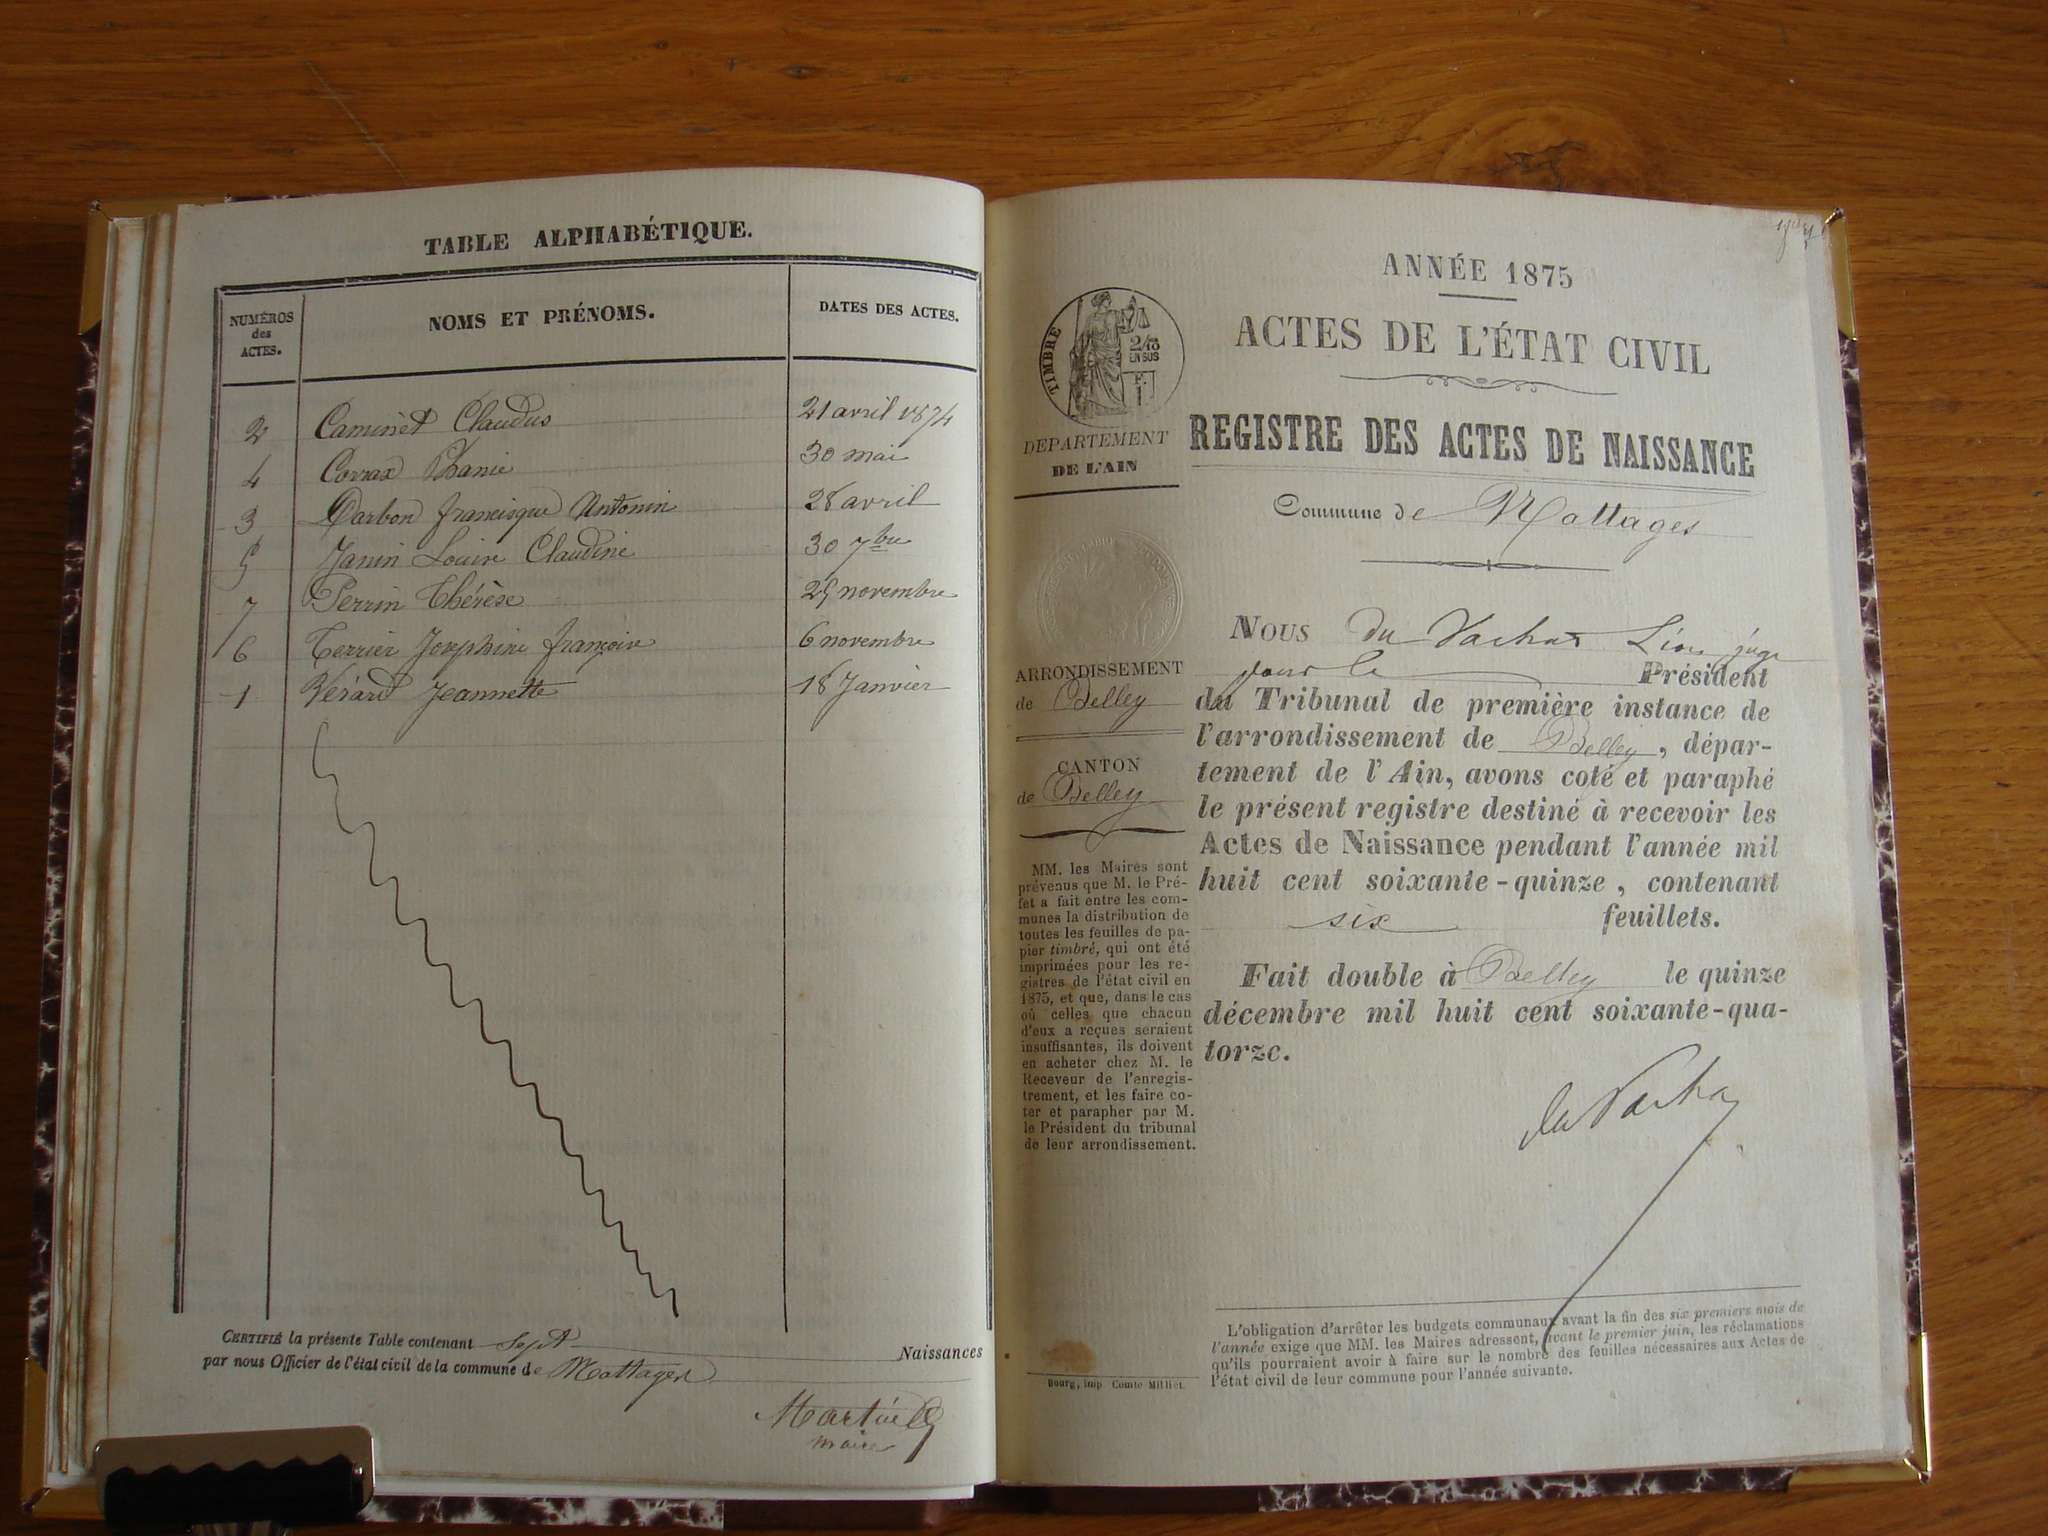 TABLE ALPHABÉTIQUE.
NUMÉROS des ACTES. NOMS ET PRÉNOMS. DATES DES ACTES.
2 Caminet Claudius 21 avril 1874
4 Corrax Phanie 30 mai
3 Darbon françisque Antonin 28 avril
5 Janin Louise Claudine 30 7bre
7 Perrin Thérèse 25 novembre
6 Terrier Josephine françoise 6 novembre
1 Vérard Jeannette 18 Janvier
CERTIFIÉ la présente Table contenant sept Naissances
par nous Officier de l'état civil de la commune de Nattages
maire
ANNÉE 1875
ACTES DE L'ÉTAT CIVIL
REGISTRE DES ACTES DE NAISSANCE
Commune de Nattages
TIMBRE
2/10
EN SUS
DÉPARTEMENT
DE L'AIN
ARRONDISSEMENT
de Belley
CANTON
de Belley
MM. les Maires sont
prévenus que M. le Pré-
fet a fait entre les com-
munes la distribution de
toutes les feuilles de pa-
pier timbré, qui ont été
imprimées pour les re-
gistres de l'état civil en
1875, et que, dans le cas
où celles que chacun
d'eux a reçues seraient
insuffisantes, ils doivent
en acheter chez M. le
Receveur de l'enregis-
trement, et les faire co-
ter et parapher par M.
le Président du tribunal
de leur arrondissement.
Bourg, imp. Comte Milliet.
NOUS du Vachat Léon juge
pour le Président
du Tribunal de première instance de
l'arrondissement de Belley, dépar-
tement de l'Ain, avons coté et paraphé
le présent registre destiné à recevoir les
Actes de Naissance pendant l'année mil
huit cent soixante-quinze, contenant
six feuillets.
Fait double à Belley le quinze
décembre mil huit cent soixante-qua-
torze.
du Vachat
L'obligation d'arrêter les budgets communaux avant la fin des six premiers mois de
l'année exige que MM. les Maires adressent, avant le premier juin, les réclamations
qu'ils pourraient avoir à faire sur le nombre des feuilles nécessaires aux Actes de
l'état civil de leur commune pour l'année suivante.